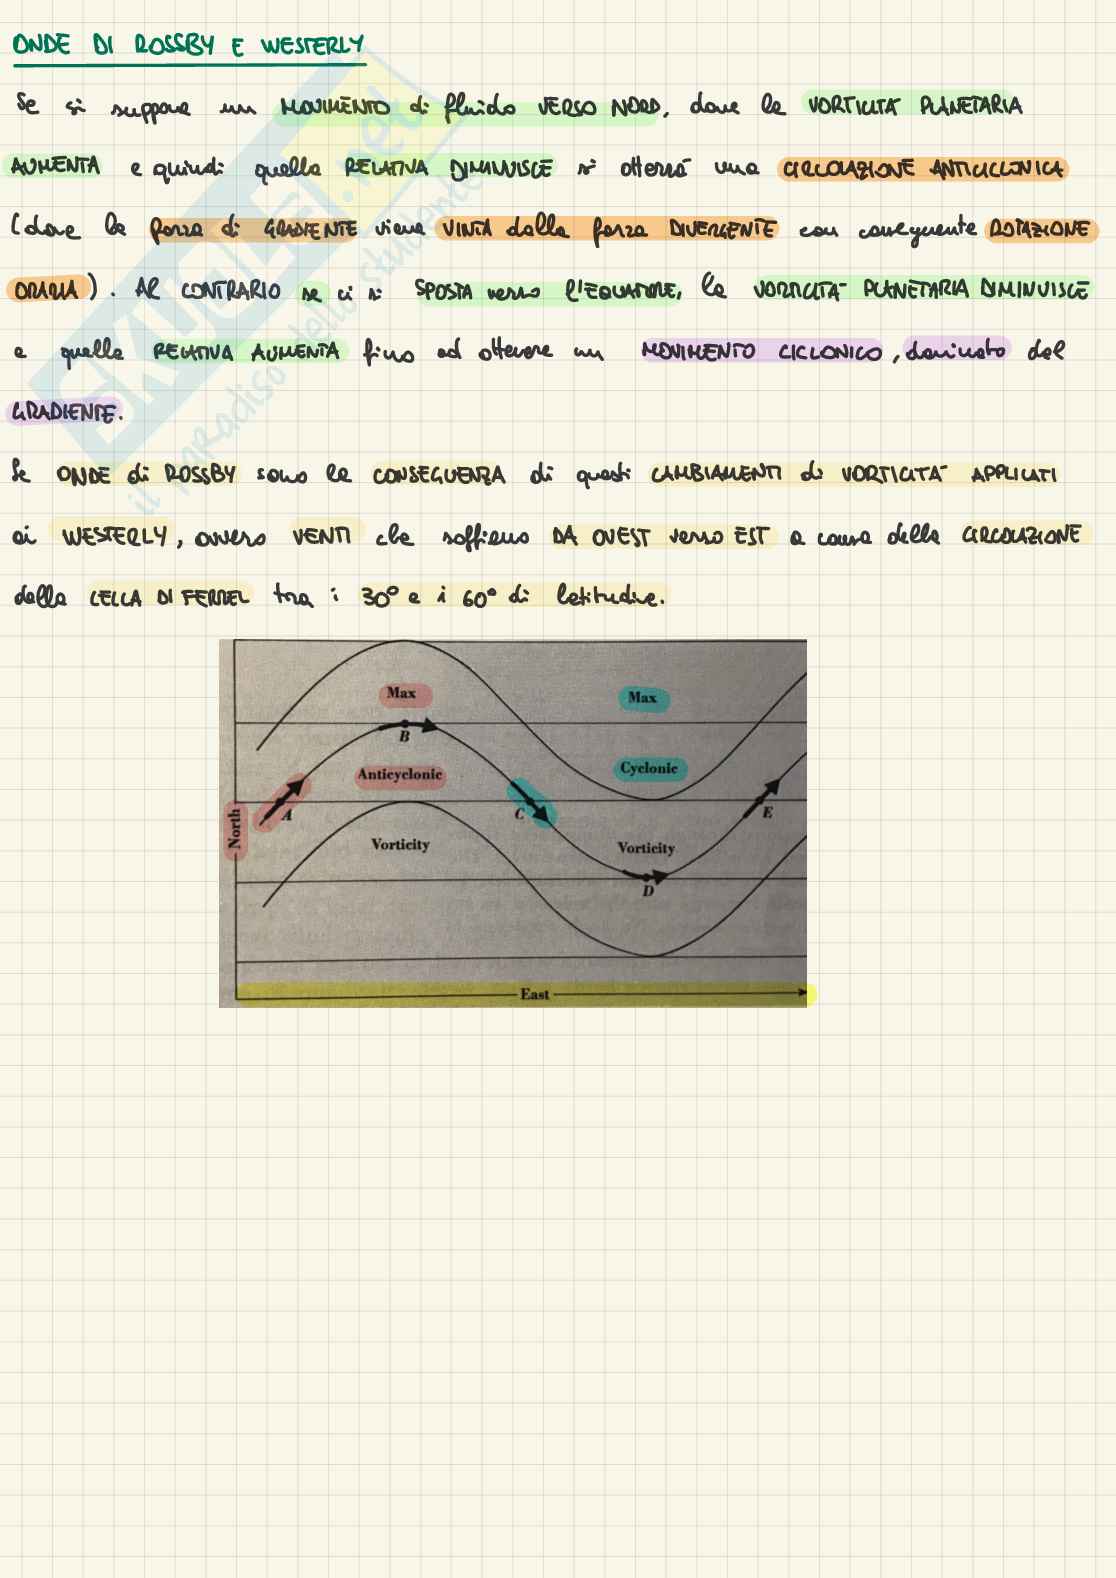 ONDE DI ROSSBY E WESTERLY
Se si suppone un MOVIMENTO di fluido VERSO NORD, dove la VORTICITÀ PLANETARIA
AUMENTA e quindi quella RELATIVA DIMINUISCE si otterrà una CIRCOLAZIONE ANTICICLONICA
(dove la forza di GRADIENTE viene VINTA dalla forza DIVERGENTE con conseguente ROTAZIONE
ORARIA). Al CONTRARIO se ci si SPOSTA verso l'EQUATORE, la VORTICITÀ PLANETARIA DIMINUISCE
e quella RELATIVA AUMENTA fino ad ottenere un MOVIMENTO CICLONICO, dominato dal
GRADIENTE.
Le ONDE di ROSSBY sono la CONSEGUENZA di questi CAMBIAMENTI di VORTICITÀ APPLICATI
ai WESTERLY, ovvero VENTI che soffiano DA OVEST verso EST a causa della CIRCOLAZIONE
della CELLA DI FERREL tra i 30° e i 60° di latitudine.
Max
Max
B
Anticyclonic
Cyclonic
A
C
E
North
Vorticity
Vorticity
D
East
SKUOLA.net
il paradiso dello studente